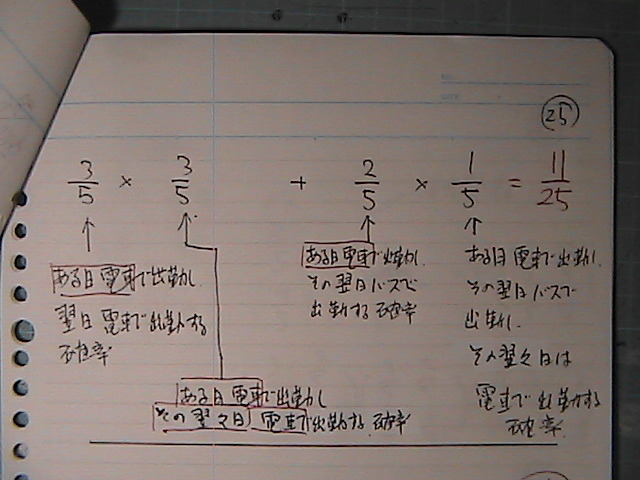 25
3/5 × 3/5 + 2/5 × 1/5 = 11/25
ある日電車で出勤し
翌日電車で出勤する
確率
ある日電車で出勤し
その翌々日電車で出勤する確率
ある日電車で出勤し
その翌日バスで
出勤する確率
ある日電車で出勤し
その翌日バスで
出勤し
その翌々日は
電車で出勤する
確率